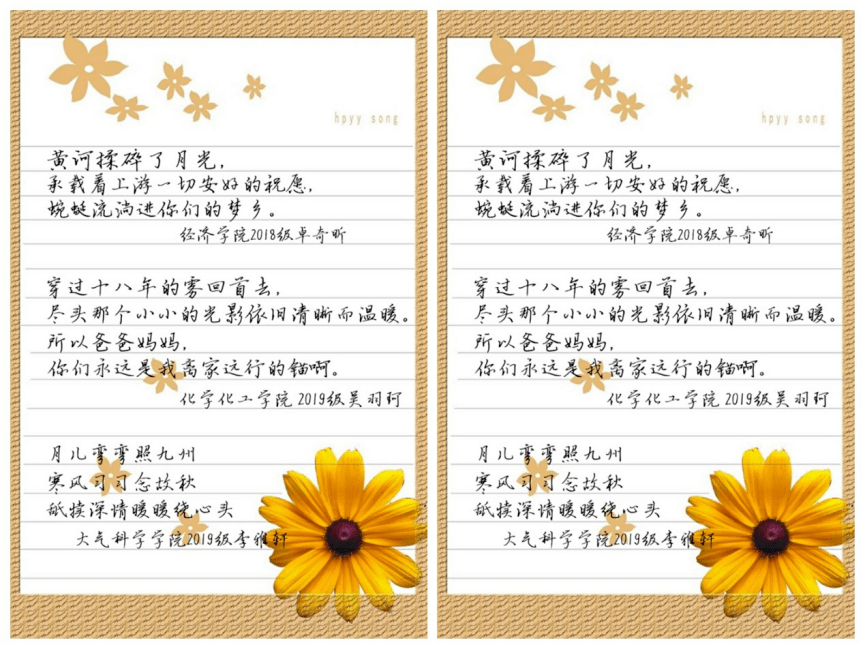 hpyy song
黄河揉碎了月光，
承载着上游一切安好的祝愿，
蜿蜒流淌进你们的梦乡。
经济学院2018级卓奇昕
穿过十八年的雾回首去，
尽头那个小小的光影依旧清晰而温暖。
所以爸爸妈妈，
你们永远是我离家远行的锚啊。
化学化工学院 2019级吴羽珂
月儿弯弯照九州
寒风习习念故秋
舐犊深情暖暖绕心头
大气科学学院2019级李雅轩
hpyy song
黄河揉碎了月光，
承载着上游一切安好的祝愿，
蜿蜒流淌进你们的梦乡。
经济学院2018级卓奇昕
穿过十八年的雾回首去，
尽头那个小小的光影依旧清晰而温暖。
所以爸爸妈妈，
你们永远是我离家远行的锚啊。
化学化工学院 2019级吴羽珂
月儿弯弯照九州
寒风习习念故秋
舐犊深情暖暖绕心头
大气科学学院2019级李雅轩